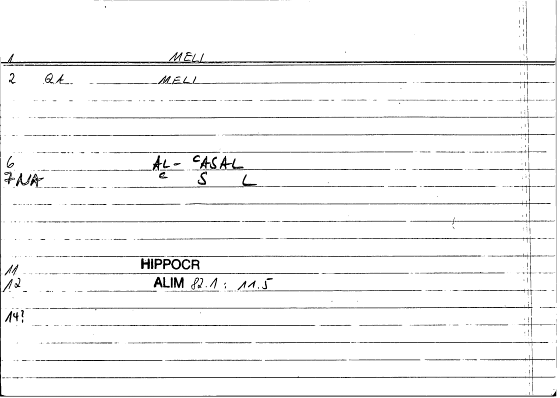 1 MELI
2 QA MELI
6 AL- cASAL
7 NA c S L
11 HIPPOCR
12 ALIM 82.1 : 11.5
14?